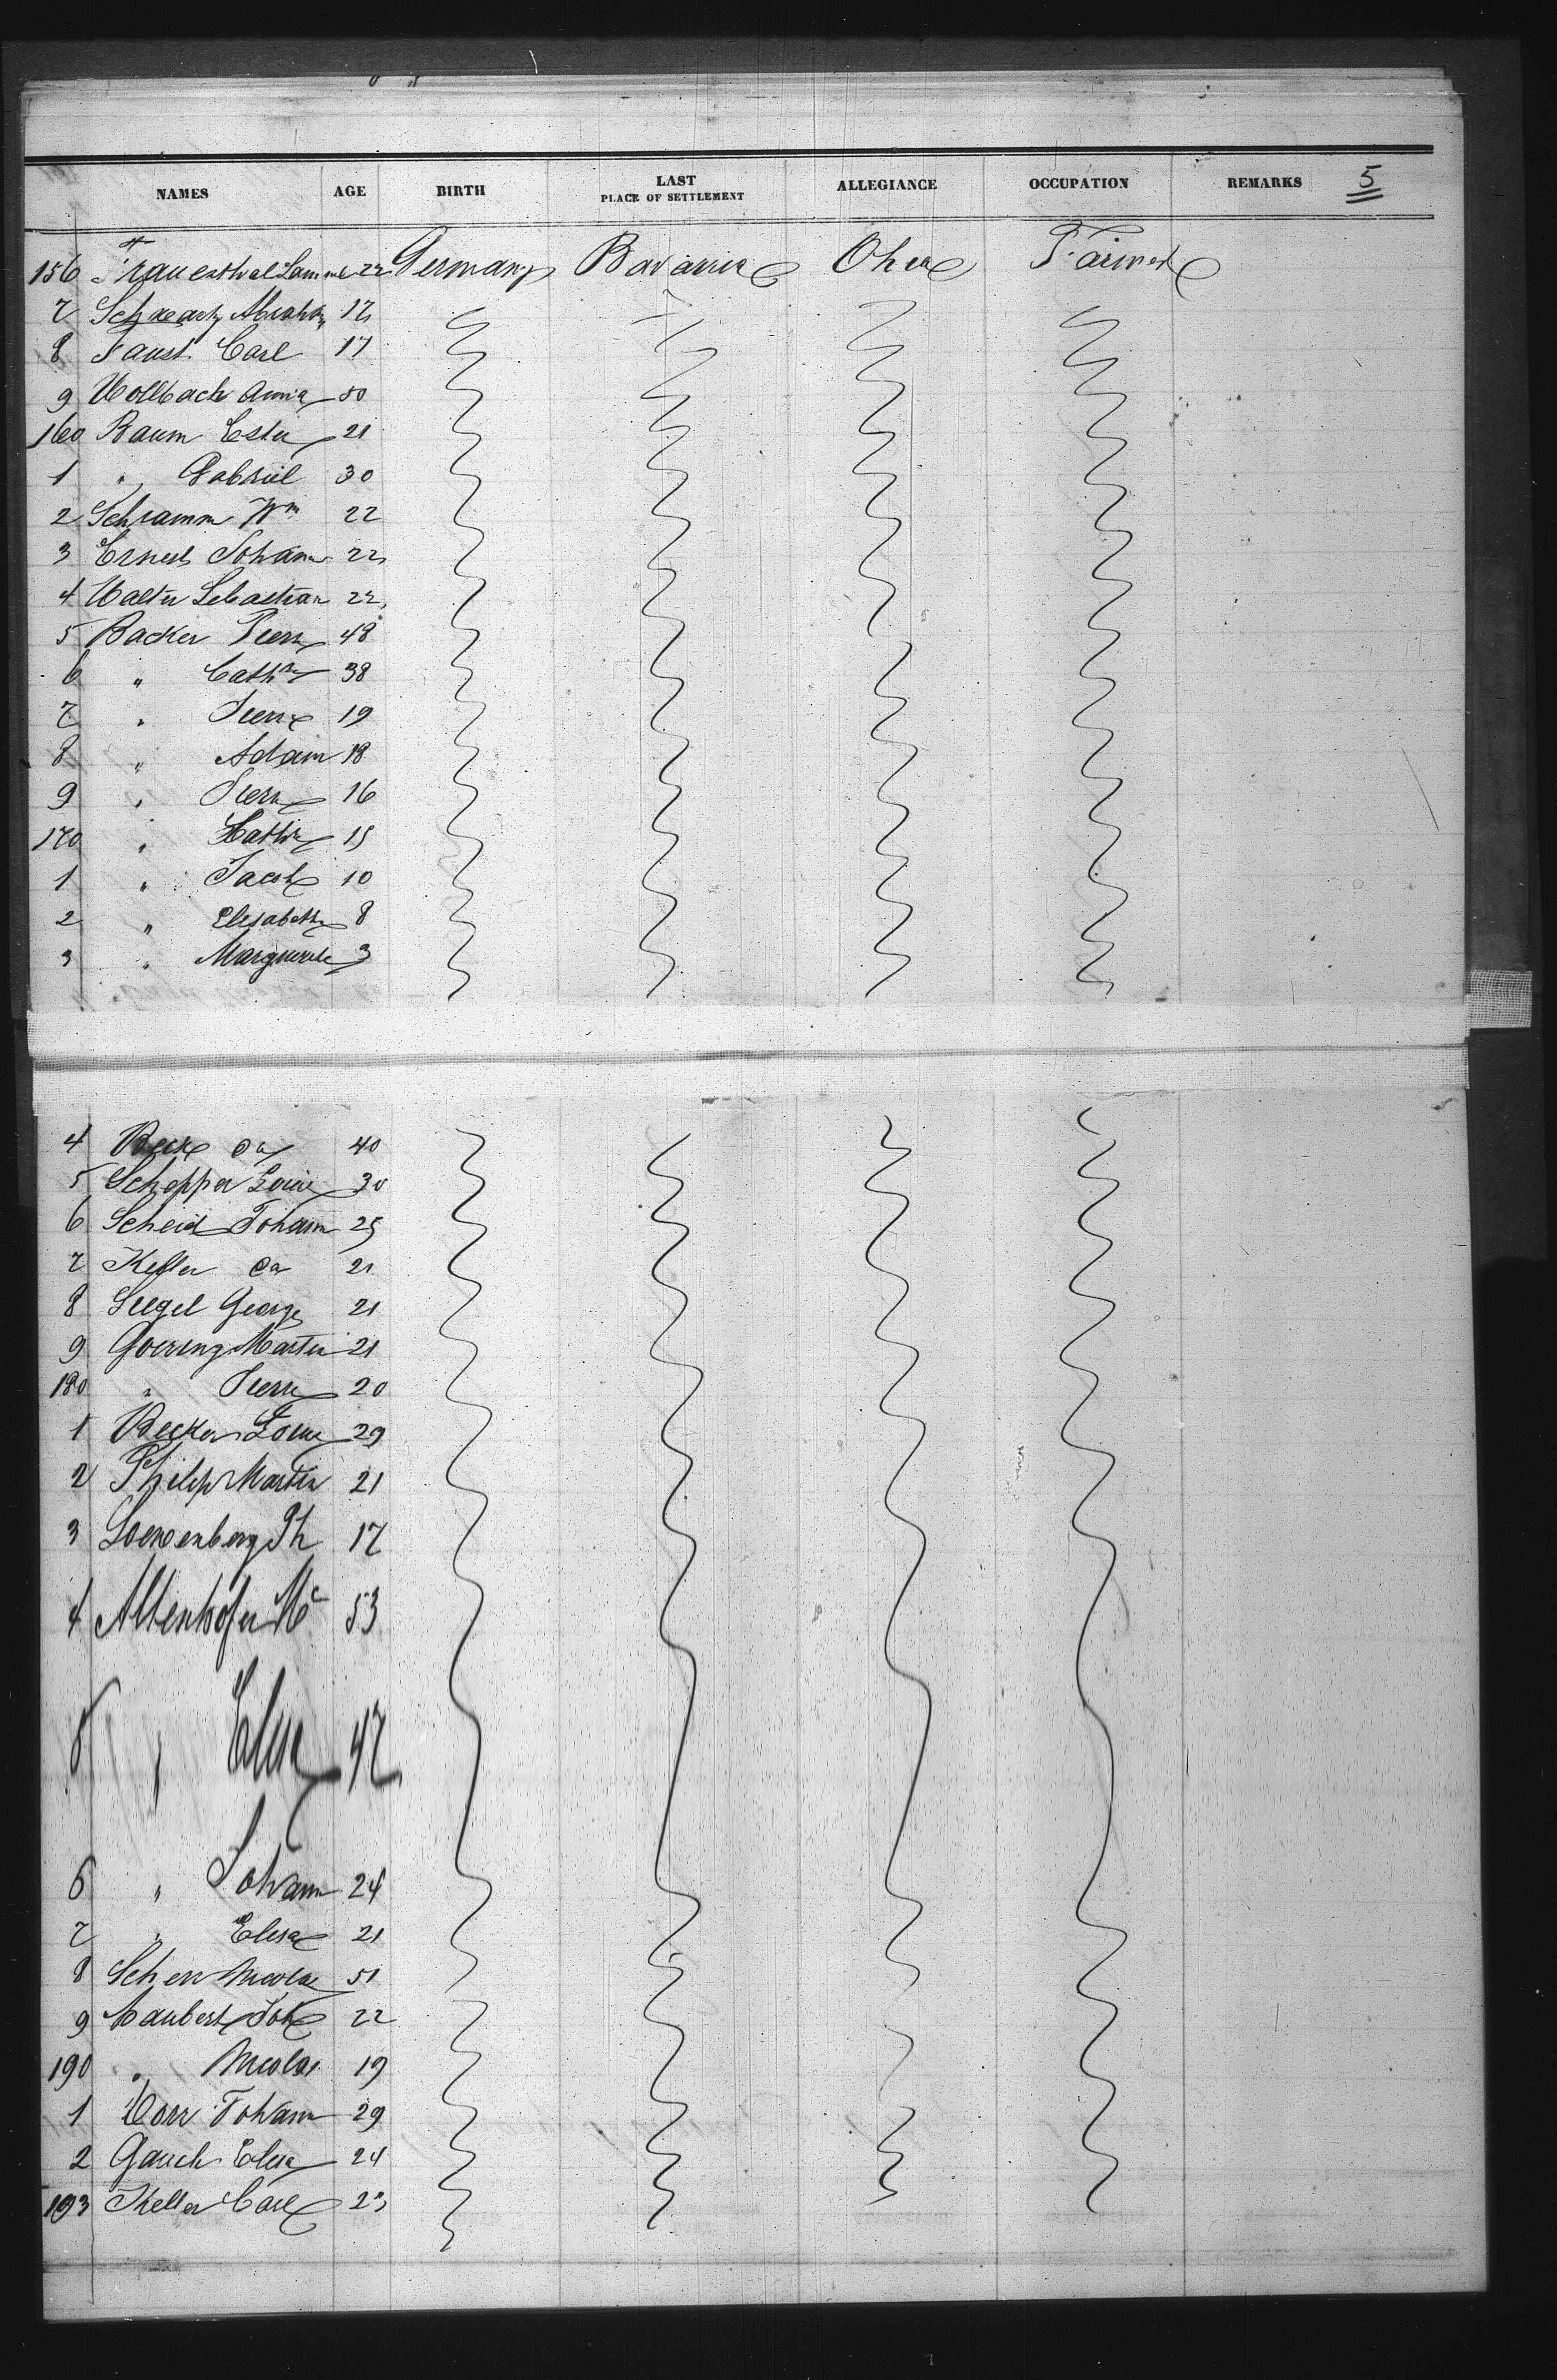 NAMES AGE BIRTH LAST PLACE OF SETTLEMENT ALLEGIANCE OCCUPATION REMARKS 5
156 Frauenthal 22 Germany Bavaria Ohio Farmer
7 Schwartz Abraham 17
8 Faust Carl 17
9 Wollbach Anna 50
160 Baum Ester 21
1 " Gabriel 30
2 Schramm Wm 22
3 Ernest Johann 22
4 Walter Sebastian 22
5 Backer Pierre 48
6 " Cath 38
7 " Pierre 19
8 " Adam 18
9 " 16
170 " Kath 15
1 " Jacob 10
2 " Elisabeth 8
3 " Marguerite 3
4 Beck 40
5 Schopper Louise 30
6 Scheid Johann 25
7 Keller 21
8 Siegel George 21
9 Goering Martin 21
180 " Pierre 20
1 Becker Louis 29
2 Philip Martin 21
3 Loewenberg Ph 17
4 Altenhofer 53
5 " Elise 47
6 " Johann 24
7 " Elisa 21
8 Scherr Nicolas 51
9 Maubert Joh 22
190 " Nicolas 19
1 Johann 29
2 Gauch Elisa 24
193 Keller Carl 23